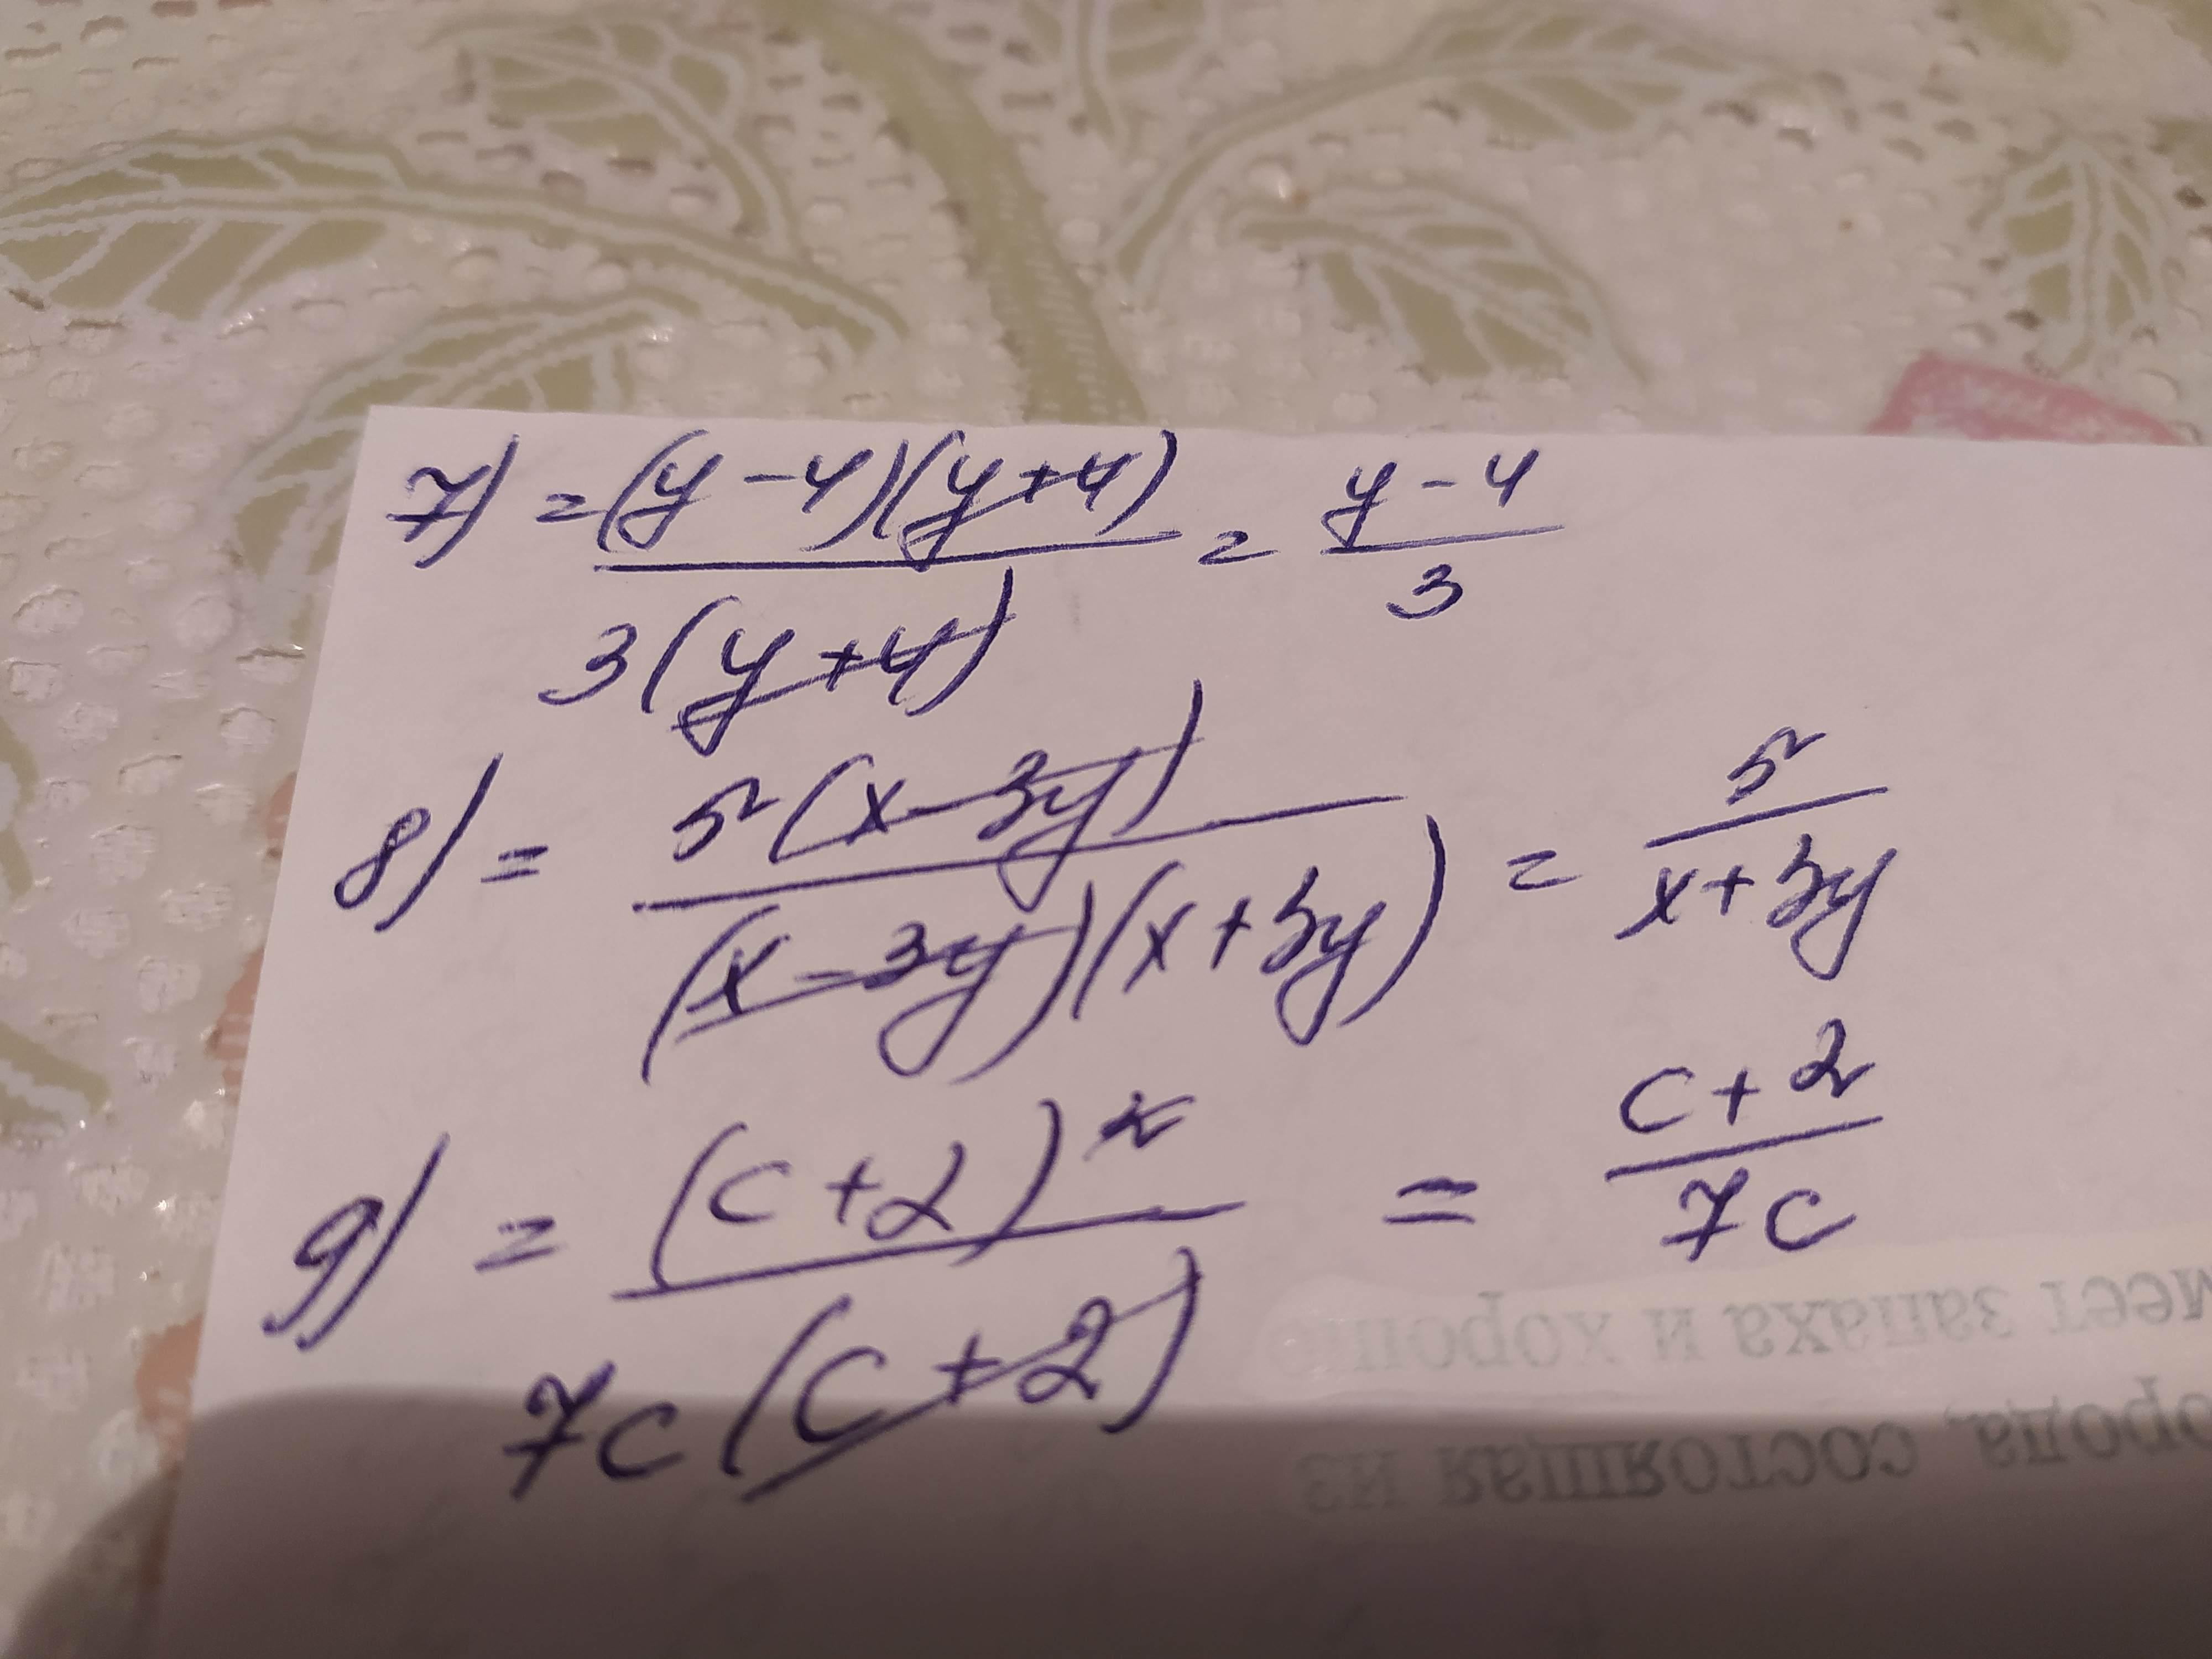 7) = (y-4)(y+4) / 3(y+4) = y-4 / 3
8) = 5(x-3y) / (x-3y)(x+3y) = 5 / x+3y
9) = (c+2)² / 7c(c+2) = c+2 / 7c
меет запаха и хорош
орода, состоящая из